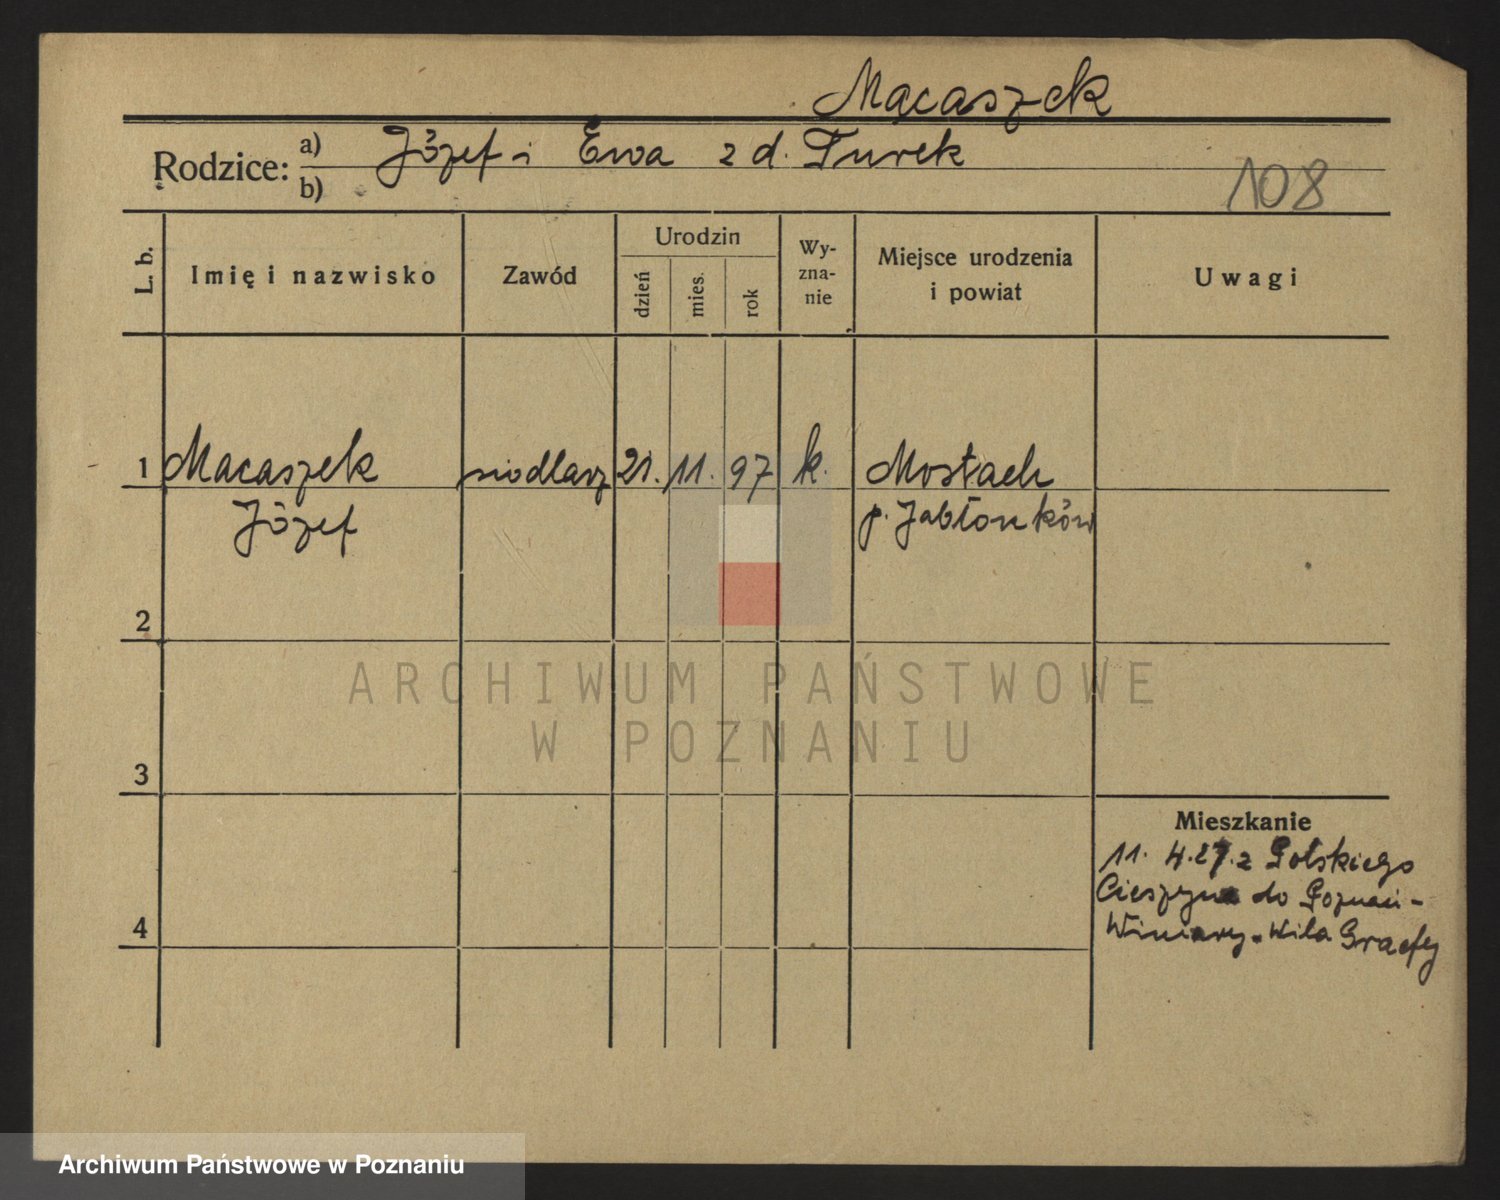 Macaszek
Rodzice: a) Józef i Ewa z d. Turek
b)
108
L. b.
Imię i nazwisko
Zawód
Urodzin
dzień
mies.
rok
Wy-
zna-
nie
Miejsce urodzenia
i powiat
Uwagi
1 Macaszek siodlarz 21. 11. 97 k. Mostach
Józef p. Jabłonków
2
3
4
Mieszkanie
11. 4. 27. z Polskiego
Cieszyna do Poznań-
Winiary. Willa Graefy
ARCHIWUM PAŃSTWOWE
W POZNANIU
Archiwum Państwowe w Poznaniu